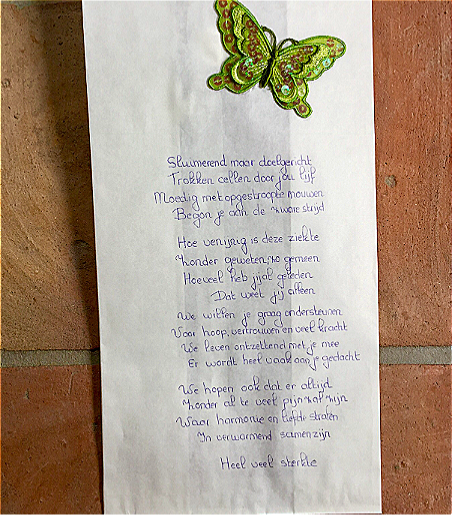 Sluimerend maar doelgericht
Trokken cellen door jou lijf
Moedig met opgestroopte mouwen
Begon je aan de zware strijd
Hoe venijnig is deze ziekte
Zonder geweten, zo gemeen
Hoeveel heb jij al geleden
Dat weet jij alleen
We willen je graag ondersteunen
Voor hoop, vertrouwen en veel kracht
We leven ontzettend met je mee
Er wordt heel vaak aan je gedacht
We hopen ook dat er altijd
Zonder al te veel pijn zal zijn
Waar harmonie en liefde stralen
In verwarmend samenzijn
Heel veel sterkte